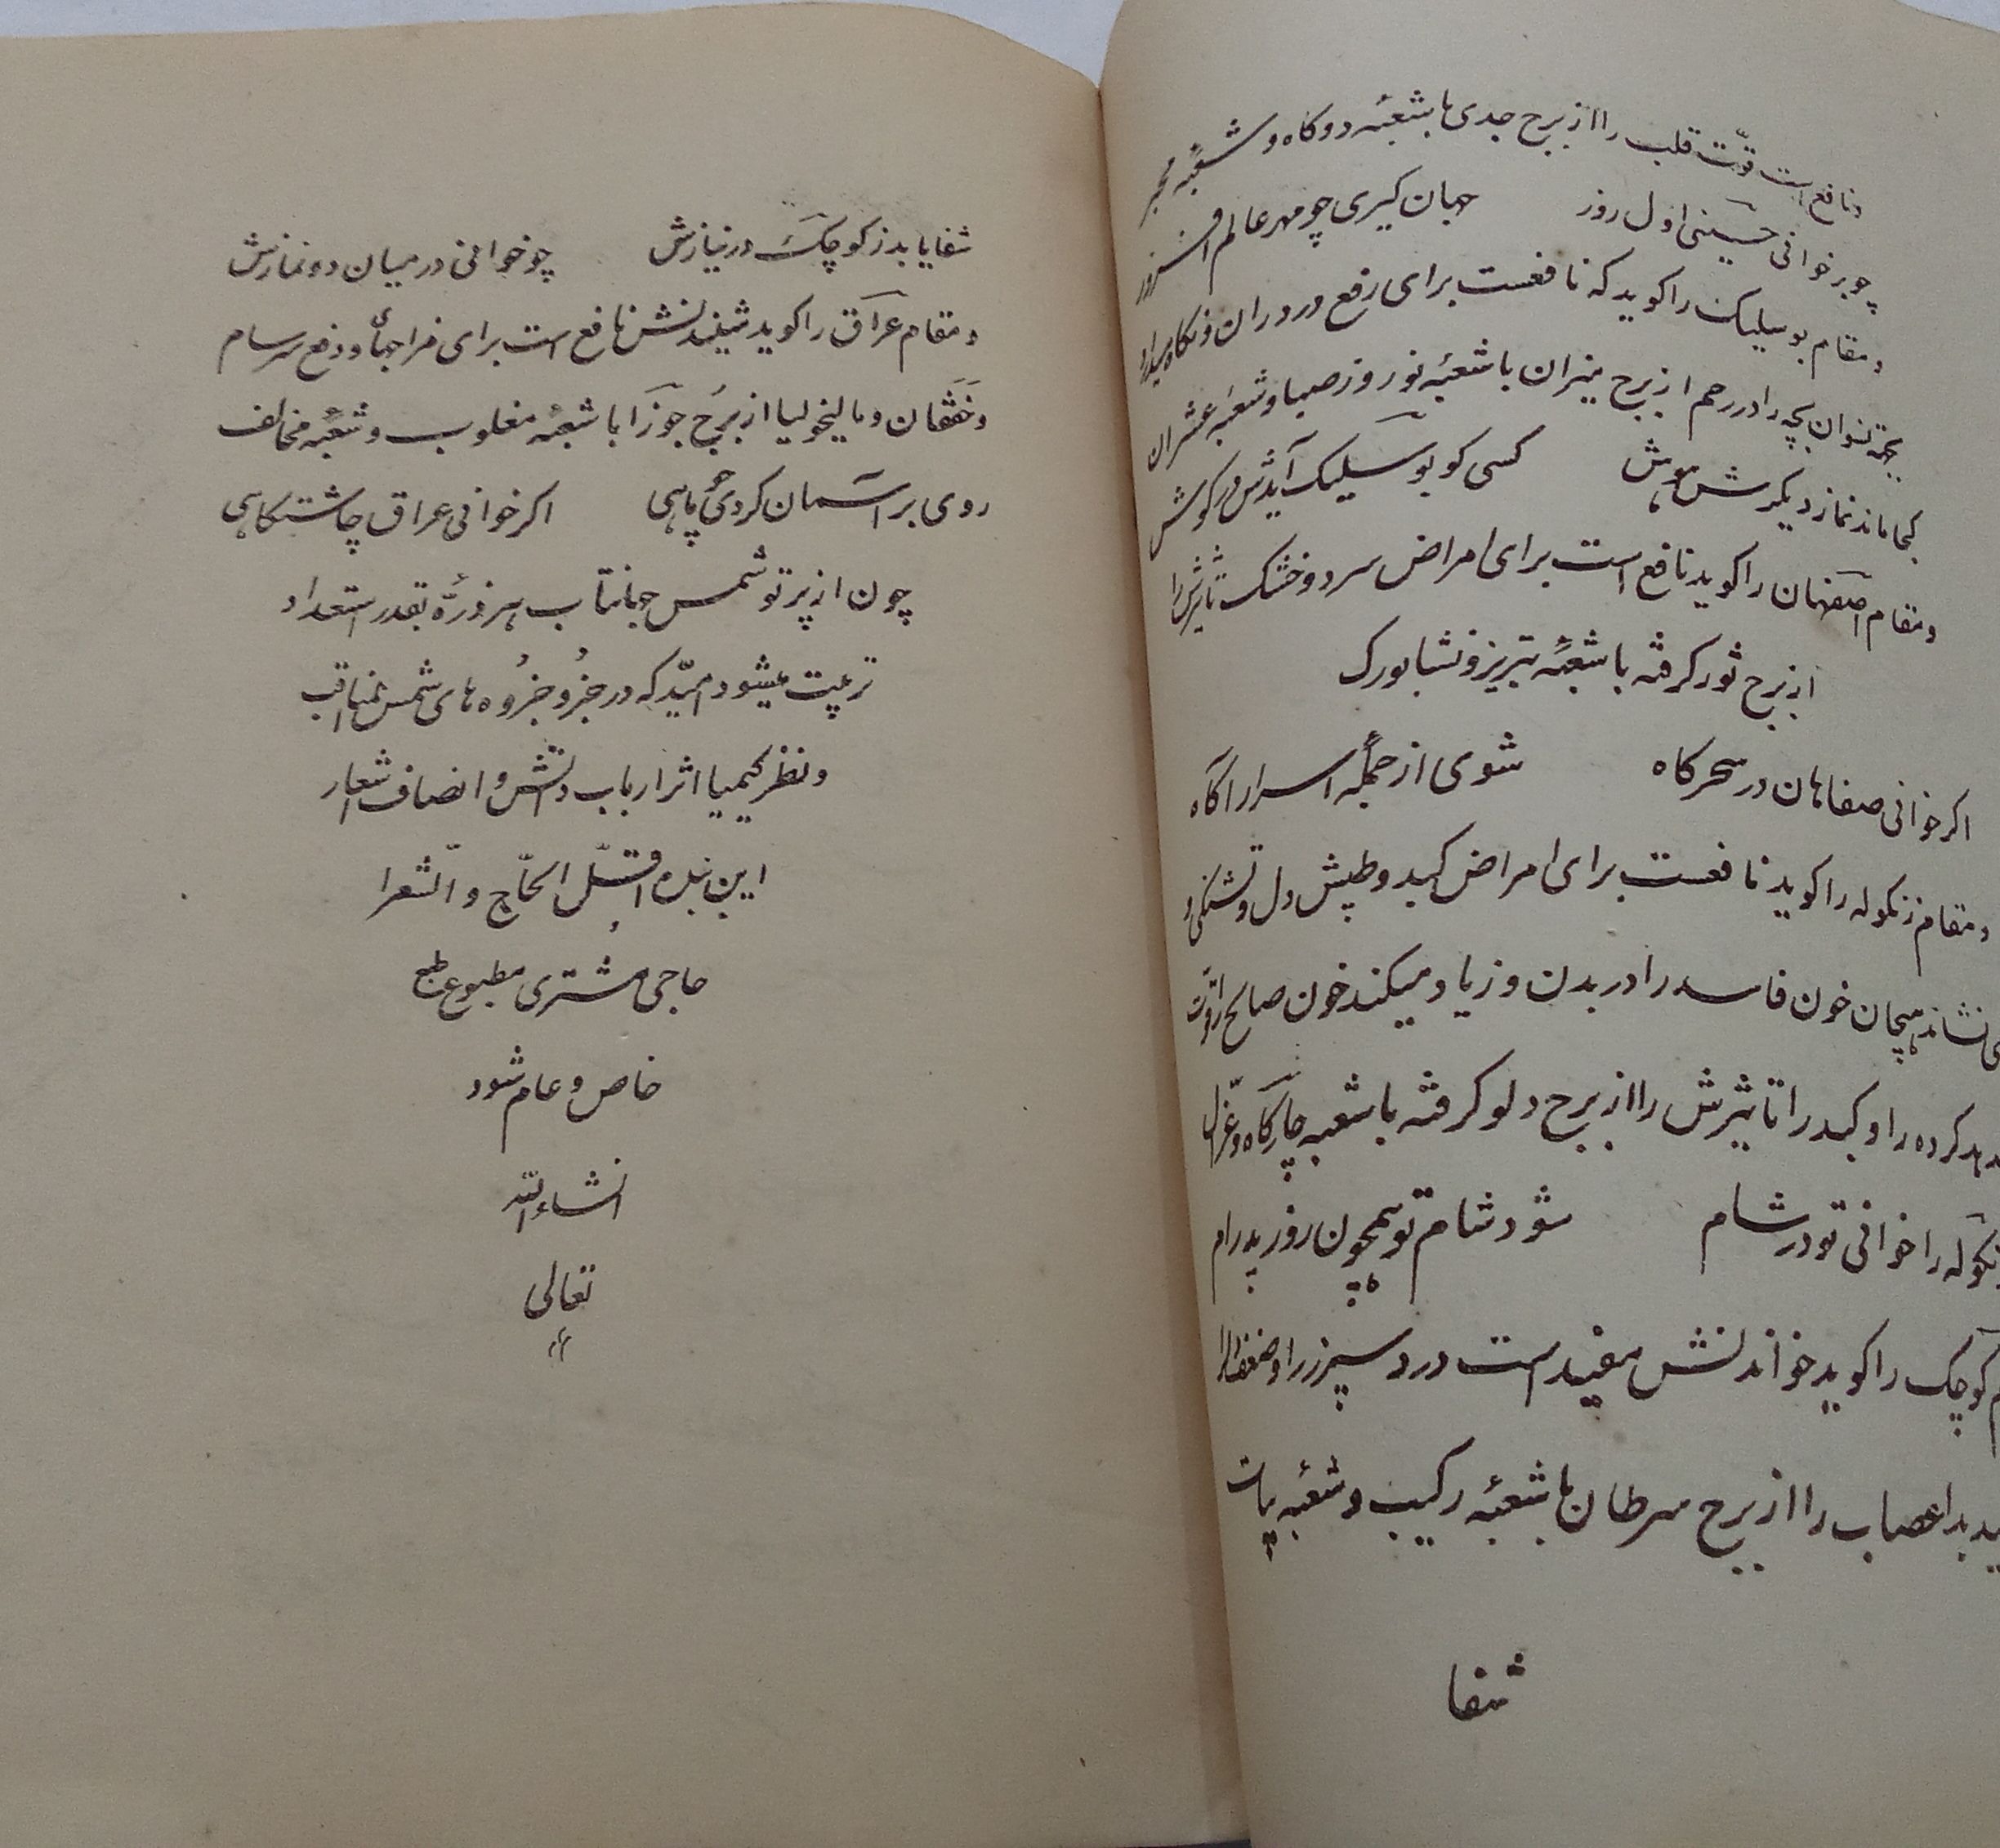 و نافع است قوّت قلب را از برج جدی با شعبهٔ دوکاه و شعبهٔ محیر
چو برخوانی حسینی اول روز جهان کیری چو مهر عالم افروز
و مقام بوسلیک را کوید که نافعست برای رفع درد ران و نکاه میدارد
بچه را در رحم از برج میزان با شعبهٔ نوروز صبا و شعبهٔ عشیران
کجا ماند نماز دیکرش هوش کسی کو بوسلیک آیدش در کوش
و مقام اصفهان را کوید نافع است برای امراض سرد و خشک تاثیرش را
از برج ثور کرفته با شعبهٔ تبریز و نشابورک
اکر خوانی صفاهان در سحرکاه شوی از جملهٔ اسرار اکاه
و مقام زنکوله را کوید نافعست برای امراض کبد و طپش دل و تشنکی و
می نشاند هیجان خون فاسد را در بدن و زیاد میکند خون صالح را قوت
کرده را و کبد را تاثیرش را از برج دلو کرفته با شعبه چارکاه و غزّال
زنکوله را خوانی تو در شام شود شام تو همچون روز پدرام
کوچک را کوید خواندنش مفید است درد سپرز را و ضعف
اعصاب را از برج سرطان با شعبهٔ رکیب و شعبهٔ بیات
شفا
شفا یابد ز کوچک در نیازش چو خوانی در میان دو نمازش
و مقام عراق را کوید شنیدنش نافع است برای مزاجهای و دفع سرسام
و خفقان و مالیخولیا از برج جوزا با شعبهٔ مغلوب و شعبهٔ مخالف
روی بر آسمان کردی چو ماهی اکر خوانی عراق چاشتکاهی
چون از پرتو شمس جهانتاب هر ذرّه بقدر استعداد
تربیت میشود امّید که در جزو جزوه های شمس المناقب
و نظر کیمیا اثر ارباب دانش و انصاف اشعار
این بنده اقلّ الحاج و الشعرا
حاجی مشتری مطبوع طبع
خاص و عام شود
انشاء الله
تعالی